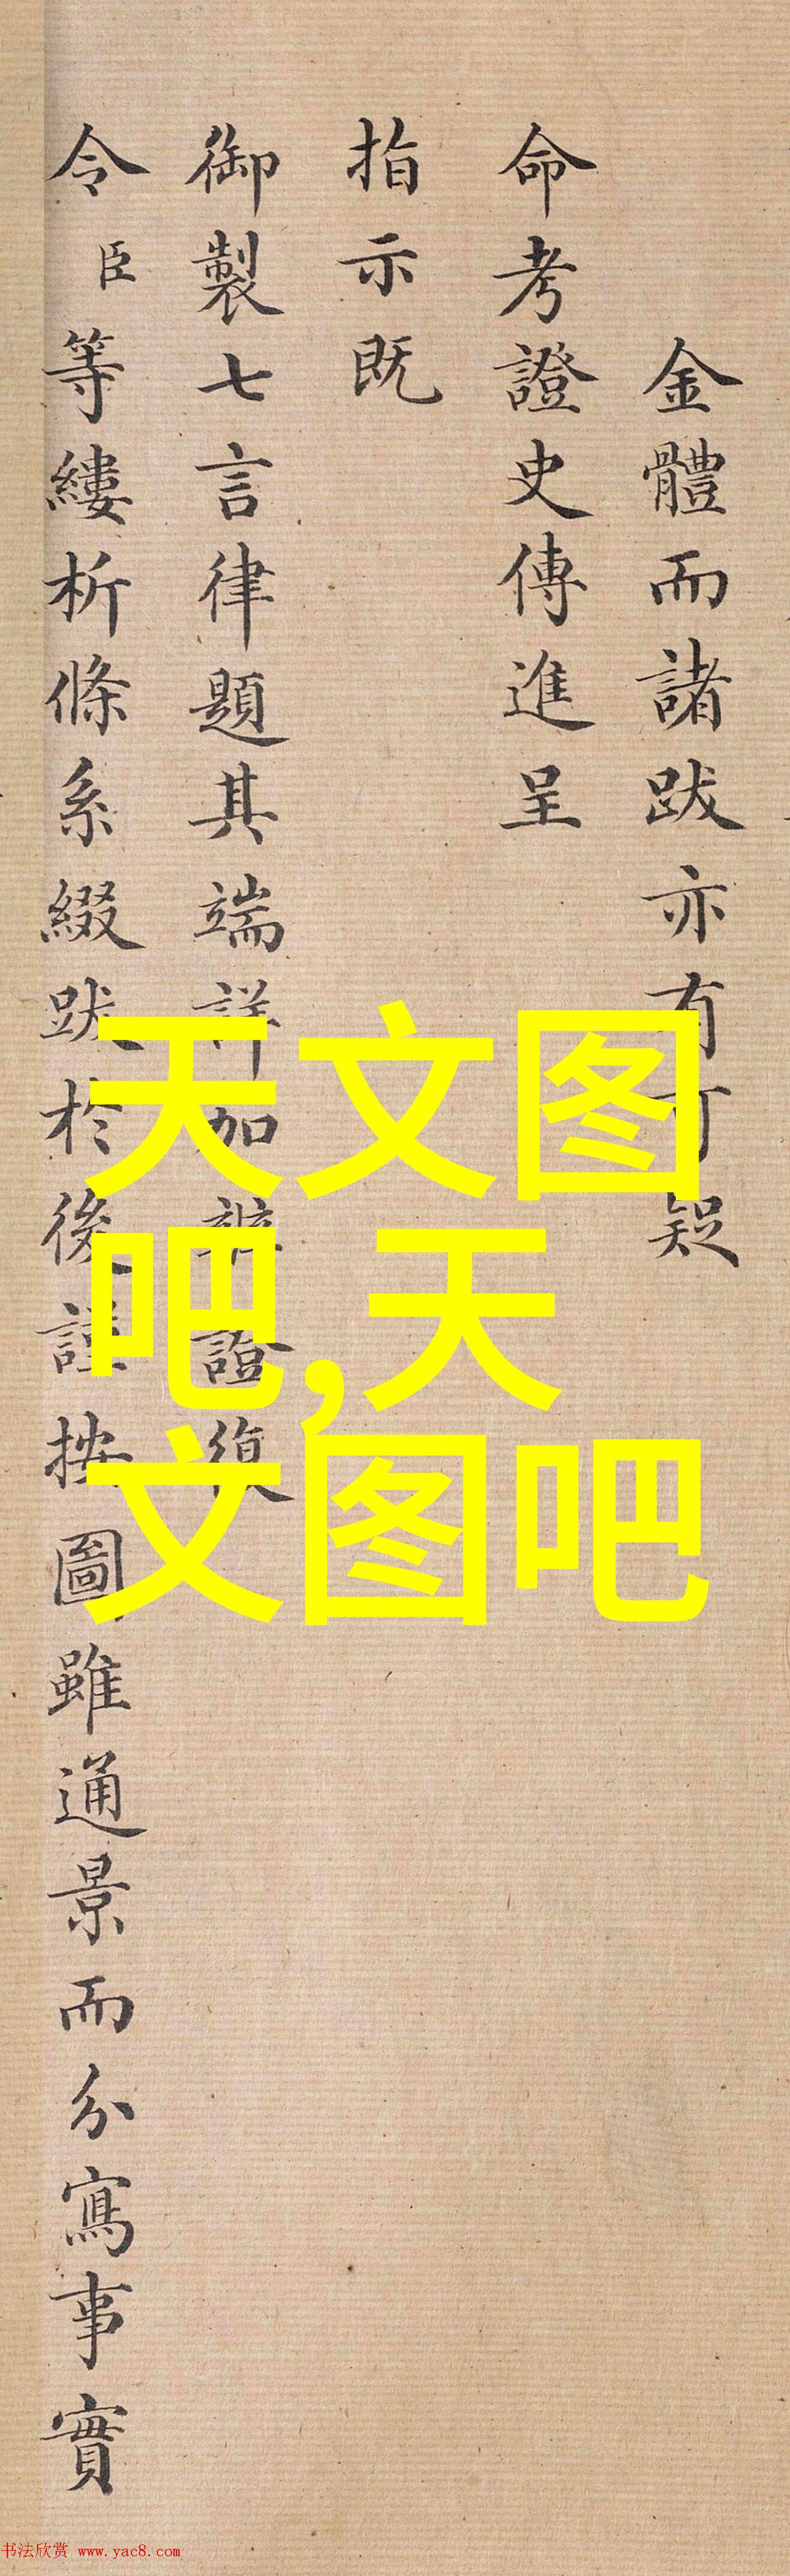 金體而諸跋亦有可疑
命考證史傳進呈
指示既
御製七言律題其端詳加辨證復
令臣等縷析條系綴跋於後謹按圖雖通景而分寫事實
天文图
吧,天
文图吧
书法欣赏 www.yac8.com